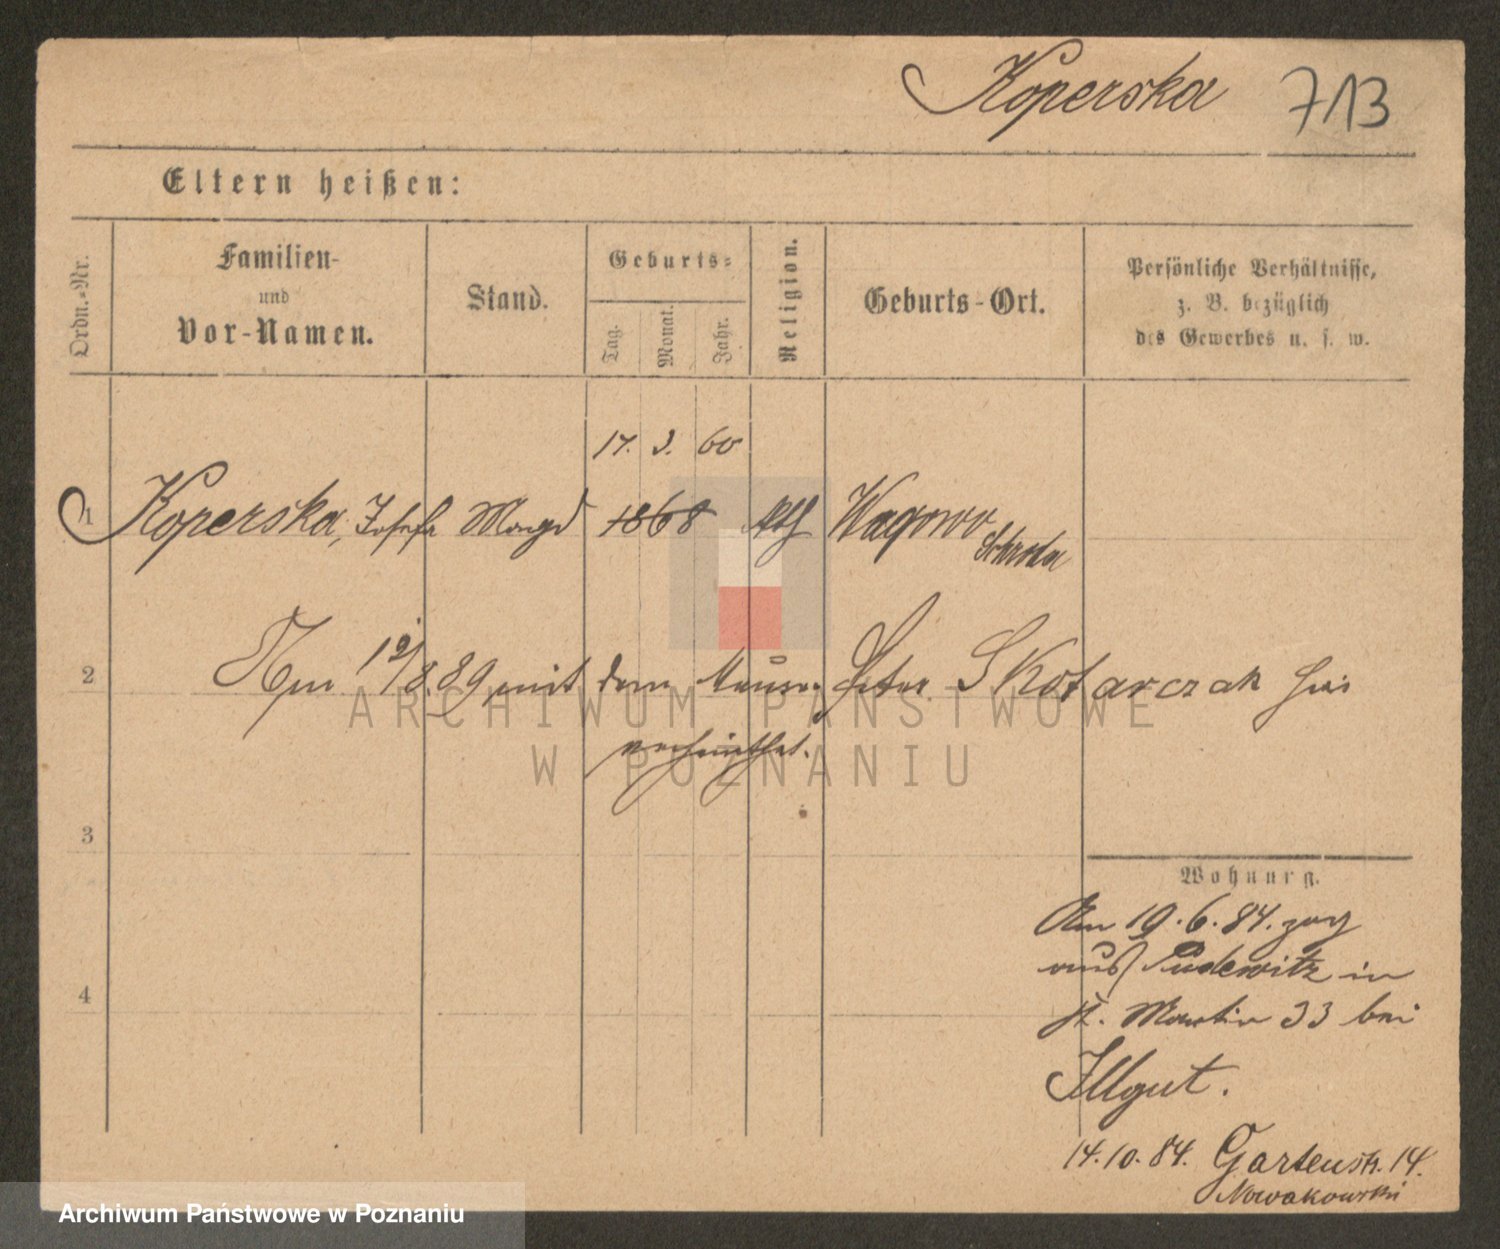 Koperska 713
Eltern heißen:
Ordn.-Nr.
Familien-
und
Vor-Namen.
Stand.
Geburts-
Tag.
Monat.
Jahr.
Religion.
Geburts-Ort.
Persönliche Verhältnisse,
z. B. bezüglich
des Gewerbes u. s. w.
17. 3. 60
1 Koperska, Josefa Magd 1868 kth Wagowo
Schroda
2 Am 12/8.89 mit dem Maurer Peter Skotarczak hier
verheirathet.
3
Wohnung.
Am 19.6.84. zog
aus Pudewitz in
St. Martin 33 bei
4
Illgut.
14.10.84. Gartenstr. 14.
Nowakowski
ARCHIWUM PAŃSTWOWE
W POZNANIU
Archiwum Państwowe w Poznaniu